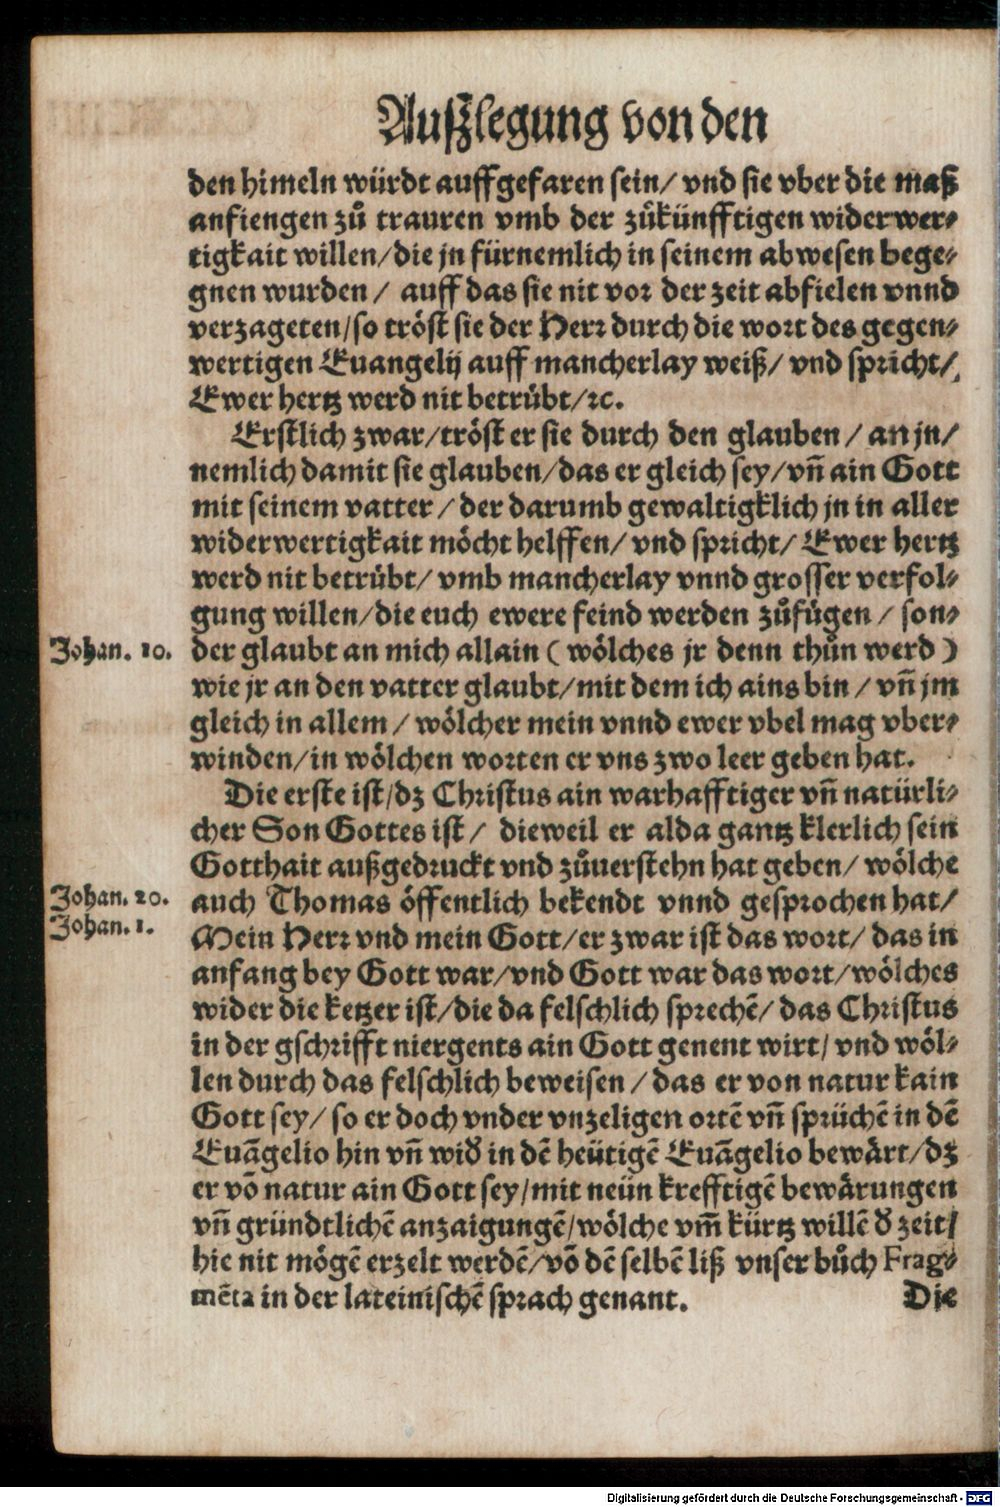 Außlegung von den
den himeln würdt auffgefaren sein/ vnd sie vber die maß
anfiengen zů trauren vmb der zůkünfftigen widerwer⸗
tigkait willen/die jn fürnemlich in seinem abwesen bege⸗
gnen wurden/ auff das sie nit vor der zeit abfielen vnnd
verzageten/so tröst sie der Herr durch die wort des gegen⸗
wertigen Euangelij auff mancherlay weiß/ vnd spricht/
Ewer hertz werd nit betrübt/ꝛc.
Erstlich zwar/tröst er sie durch den glauben/ an jn/
nemlich damit sie glauben/das er gleich sey/vñ ain Gott
mit seinem vatter/ der darumb gewaltigklich jn in aller
widerwertigkait möcht helffen/ vnd spricht/ Ewer hertz
werd nit betrübt/ vmb mancherlay vnnd grosser verfol⸗
gung willen/die euch ewere feind werden zůfügen/ son⸗
Johan. 10.
der glaubt an mich allain (wölches jr denn thůn werd)
wie jr an den vatter glaubt/mit dem ich ains bin/ vñ jm
gleich in allem/ wölcher mein vnnd ewer vbel mag vber⸗
winden/in wölchen worten er vns zwo leer geben hat.
Die erste ist/dz Christus ain warhafftiger vñ natürli⸗
cher Son Gottes ist/ dieweil er alda gantz klerlich sein
Gotthait außgedruckt vnd zůuerstehn hat geben/ wölche
Johan. 20.
auch Thomas öffentlich bekendt vnnd gesprochen hat/
Johan. 1.
Mein Herr vnd mein Gott/er zwar ist das wort/ das in
anfang bey Gott war/vnd Gott war das wort/wölches
wider die ketzer ist/die da felschlich sprechẽ/ das Christus
in der gschrifft niergents ain Gott genent wirt/ vnd wöl⸗
len durch das felschlich beweisen/ das er von natur kain
Gott sey/ so er doch vnder vnzeligen ortẽ vñ sprüchẽ in dẽ
Euãgelio hin vñ wiď in dẽ heütigẽ Euãgelio bewärt/dz
er võ natur ain Gott sey/mit neün krefftigẽ bewärungen
vñ gründtlichẽ anzaigungẽ/wölche vm̃ kürtz willẽ ď zeit/
hie nit mögẽ erzelt werdẽ/võ dẽ selbẽ liß vnser bůch Frag⸗
mẽta in der lateinischẽ sprach genant.
Die
Digitalisierung gefördert durch die Deutsche Forschungsgemeinschaft - DFG